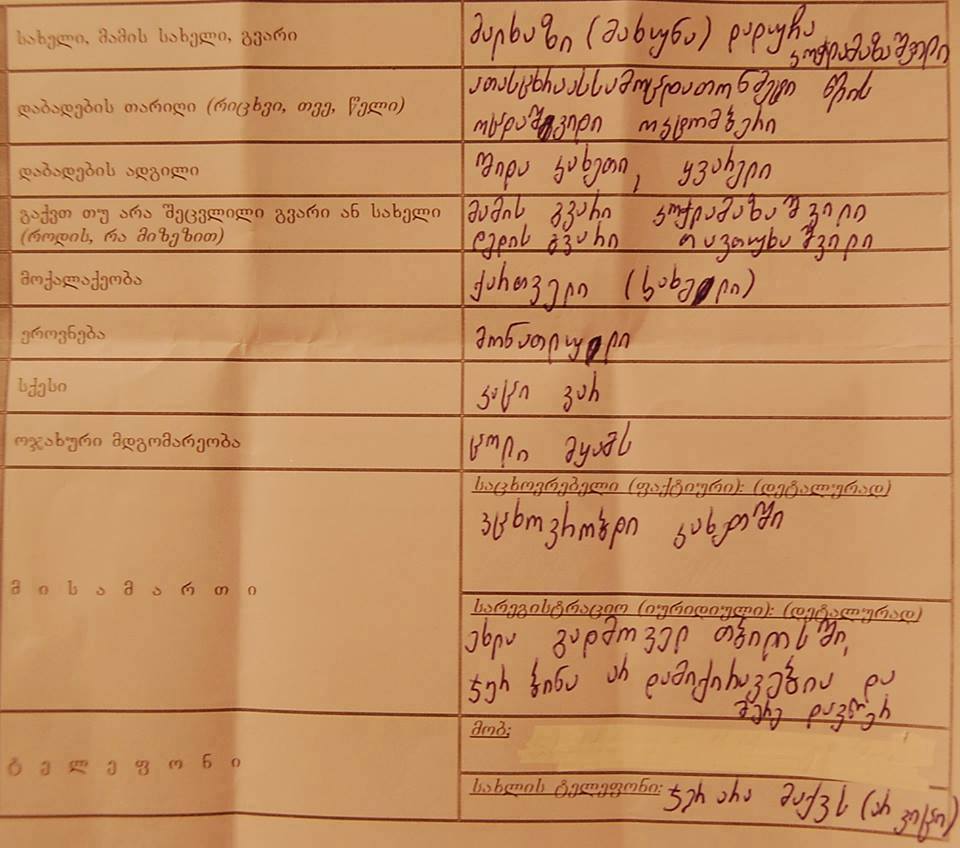 სახელი, მამის სახელი, გვარი
მარხაზი (მახუნა) დადუჩა
კოჭლამაზაშვილი
დაბადების თარიღი (რიცხვი, თვე, წელი)
ათასცხრაასსამოცდათონმეტი წლის
ოცდაშვიდი ოქტომბერი
დაბადების ადგილი
შიდა კახეთი, ყვარელი
გაქვთ თუ არა შეცვლილი გვარი ან სახელი
(როდის, რა მიზეზით)
მამის გვარი კოჭლამაზაშვილი
დედის გვარი თავთუხაშვილი
მოქალაქეობა
ქართველი (კახელი)
ეროვნება
მონათლული
სქესი
კაცი ვარ
ოჯახური მდგომარეობა
ცოლი მყამს
მისამართი
საცხოვრებელი (ფაქტიური): (დეტალურად)
ვცხოვრობდი კახეთში
სარეგისტრაციო (იურიდიული): (დეტალურად)
ეხლა გადმოველ თბილისში,
ჯერ ბინა არ დამიქირავებია და
მერე დავწერ
ტელეფონი
მობ:
სახლის ტელეფონი: ჯერ არა მაქვს (არ ვიცი)